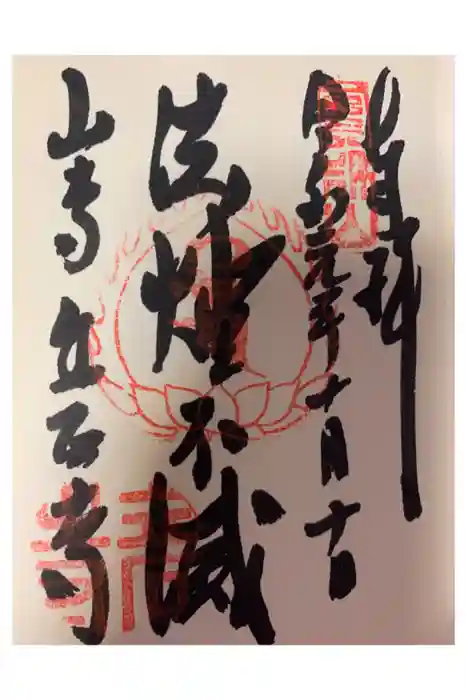 奉拝
令和元年十月十日
法燈不滅
山寺 立石寺